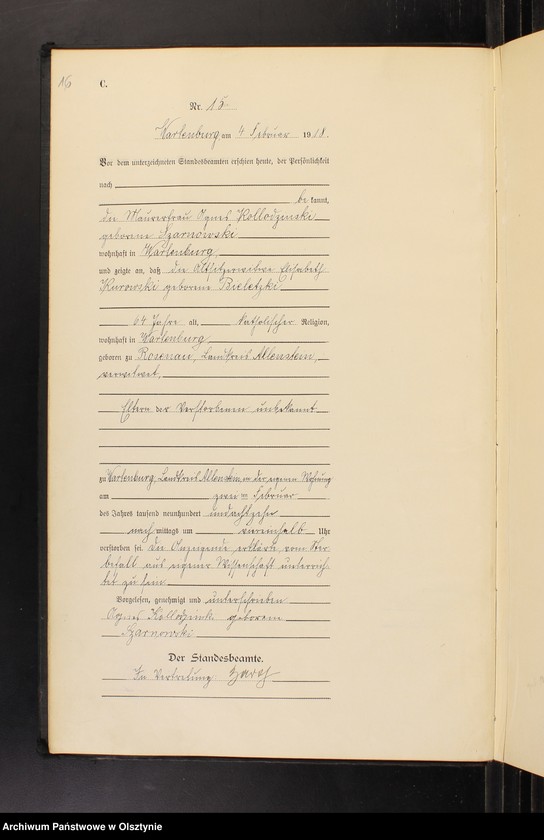 16
C.
Nr. 15
Wartenburg am 4 Februar 1918.
Vor dem unterzeichneten Standesbeamten erschien heute, der Persönlichkeit
nach
be kannt,
die Maurerfrau Agnes Kollodzinski
geborene Szarnowski
wohnhaft in Wartenburg
und zeigte an, daß die Altsitzerwitwe Elisabeth
Kurowski geborene Bieletzki
64 Jahre alt, katholischer Religion,
wohnhaft in Wartenburg
geboren zu Rosenau, Landkreis Allenstein,
verwitwet,
Eltern der Verstorbenen unbekannt
zu Wartenburg, Landkreis Allenstein in der eigenen Wohnung
am zwei ten Februar
des Jahres tausend neunhundert und achtzehn
nach mittags um viereinhalb Uhr
verstorben sei. Die Anzeigende erklärte vom Ster
befall aus eigener Wissenschaft unterrich
tet zu sein
Vorgelesen, genehmigt und unterschrieben
Agnes Kollodzinski geborene
Szarnowski
Der Standesbeamte.
In Vertretung
Archiwum Państwowe w Olsztynie